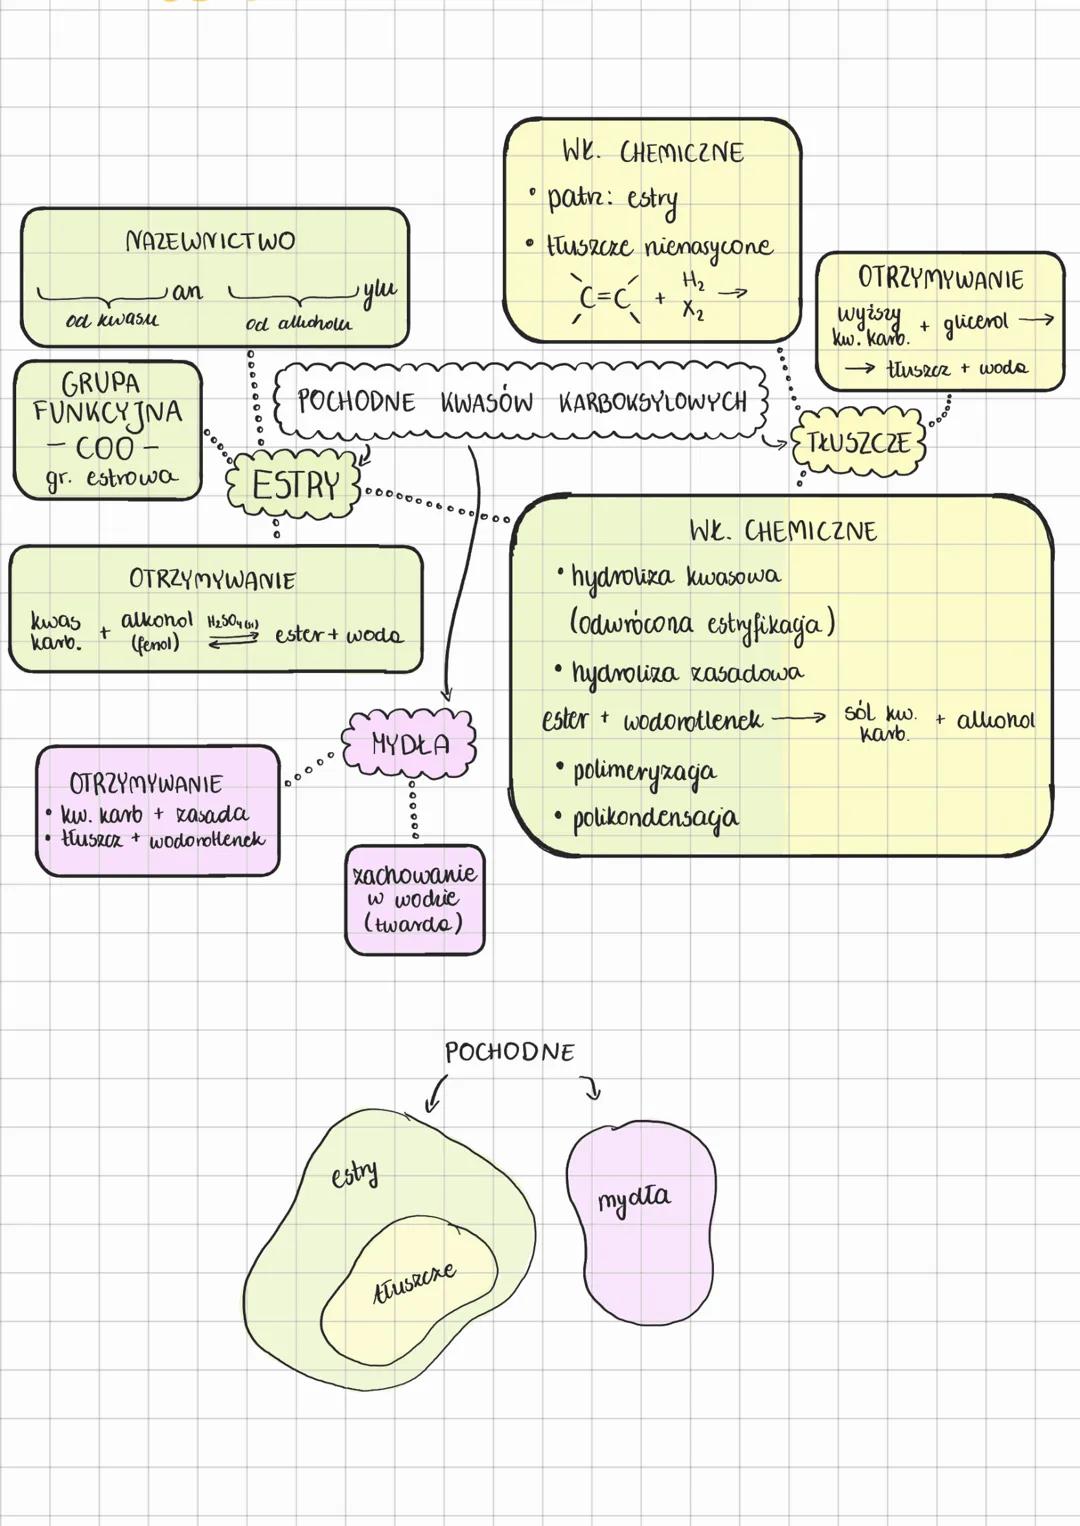 WŁ. CHEMICZNE
• patrz: estry
• tłuszcze nienasycone
C=C + H₂ →
X₂
NAZEWNICTWO
an ylu
od kwasu od alkoholu
OTRZYMYWANIE
wyższy kw. karb. + glicerol →
→ tłuszcz + woda
GRUPA
FUNKCYJNA
- COO -
gr. estrowa
POCHODNE KWASÓW KARBOKSYLOWYCH
TŁUSZCZE
ESTRY
WŁ. CHEMICZNE
• hydroliza kwasowa
(odwrócona estryfikacja)
• hydroliza zasadowa
ester + wodorotlenek → sól kw. karb. + alkohol
• polimeryzacja
• polikondensacja
OTRZYMYWANIE
kwas karb. + alkohol (fenol) H₂SO₄(st) ⇌ ester + woda
MYDŁA
OTRZYMYWANIE
• kw. karb + zasada
• tłuszcz + wodorotlenek
zachowanie
w wodzie
(twarda)
POCHODNE
estry
mydła
tłuszcze